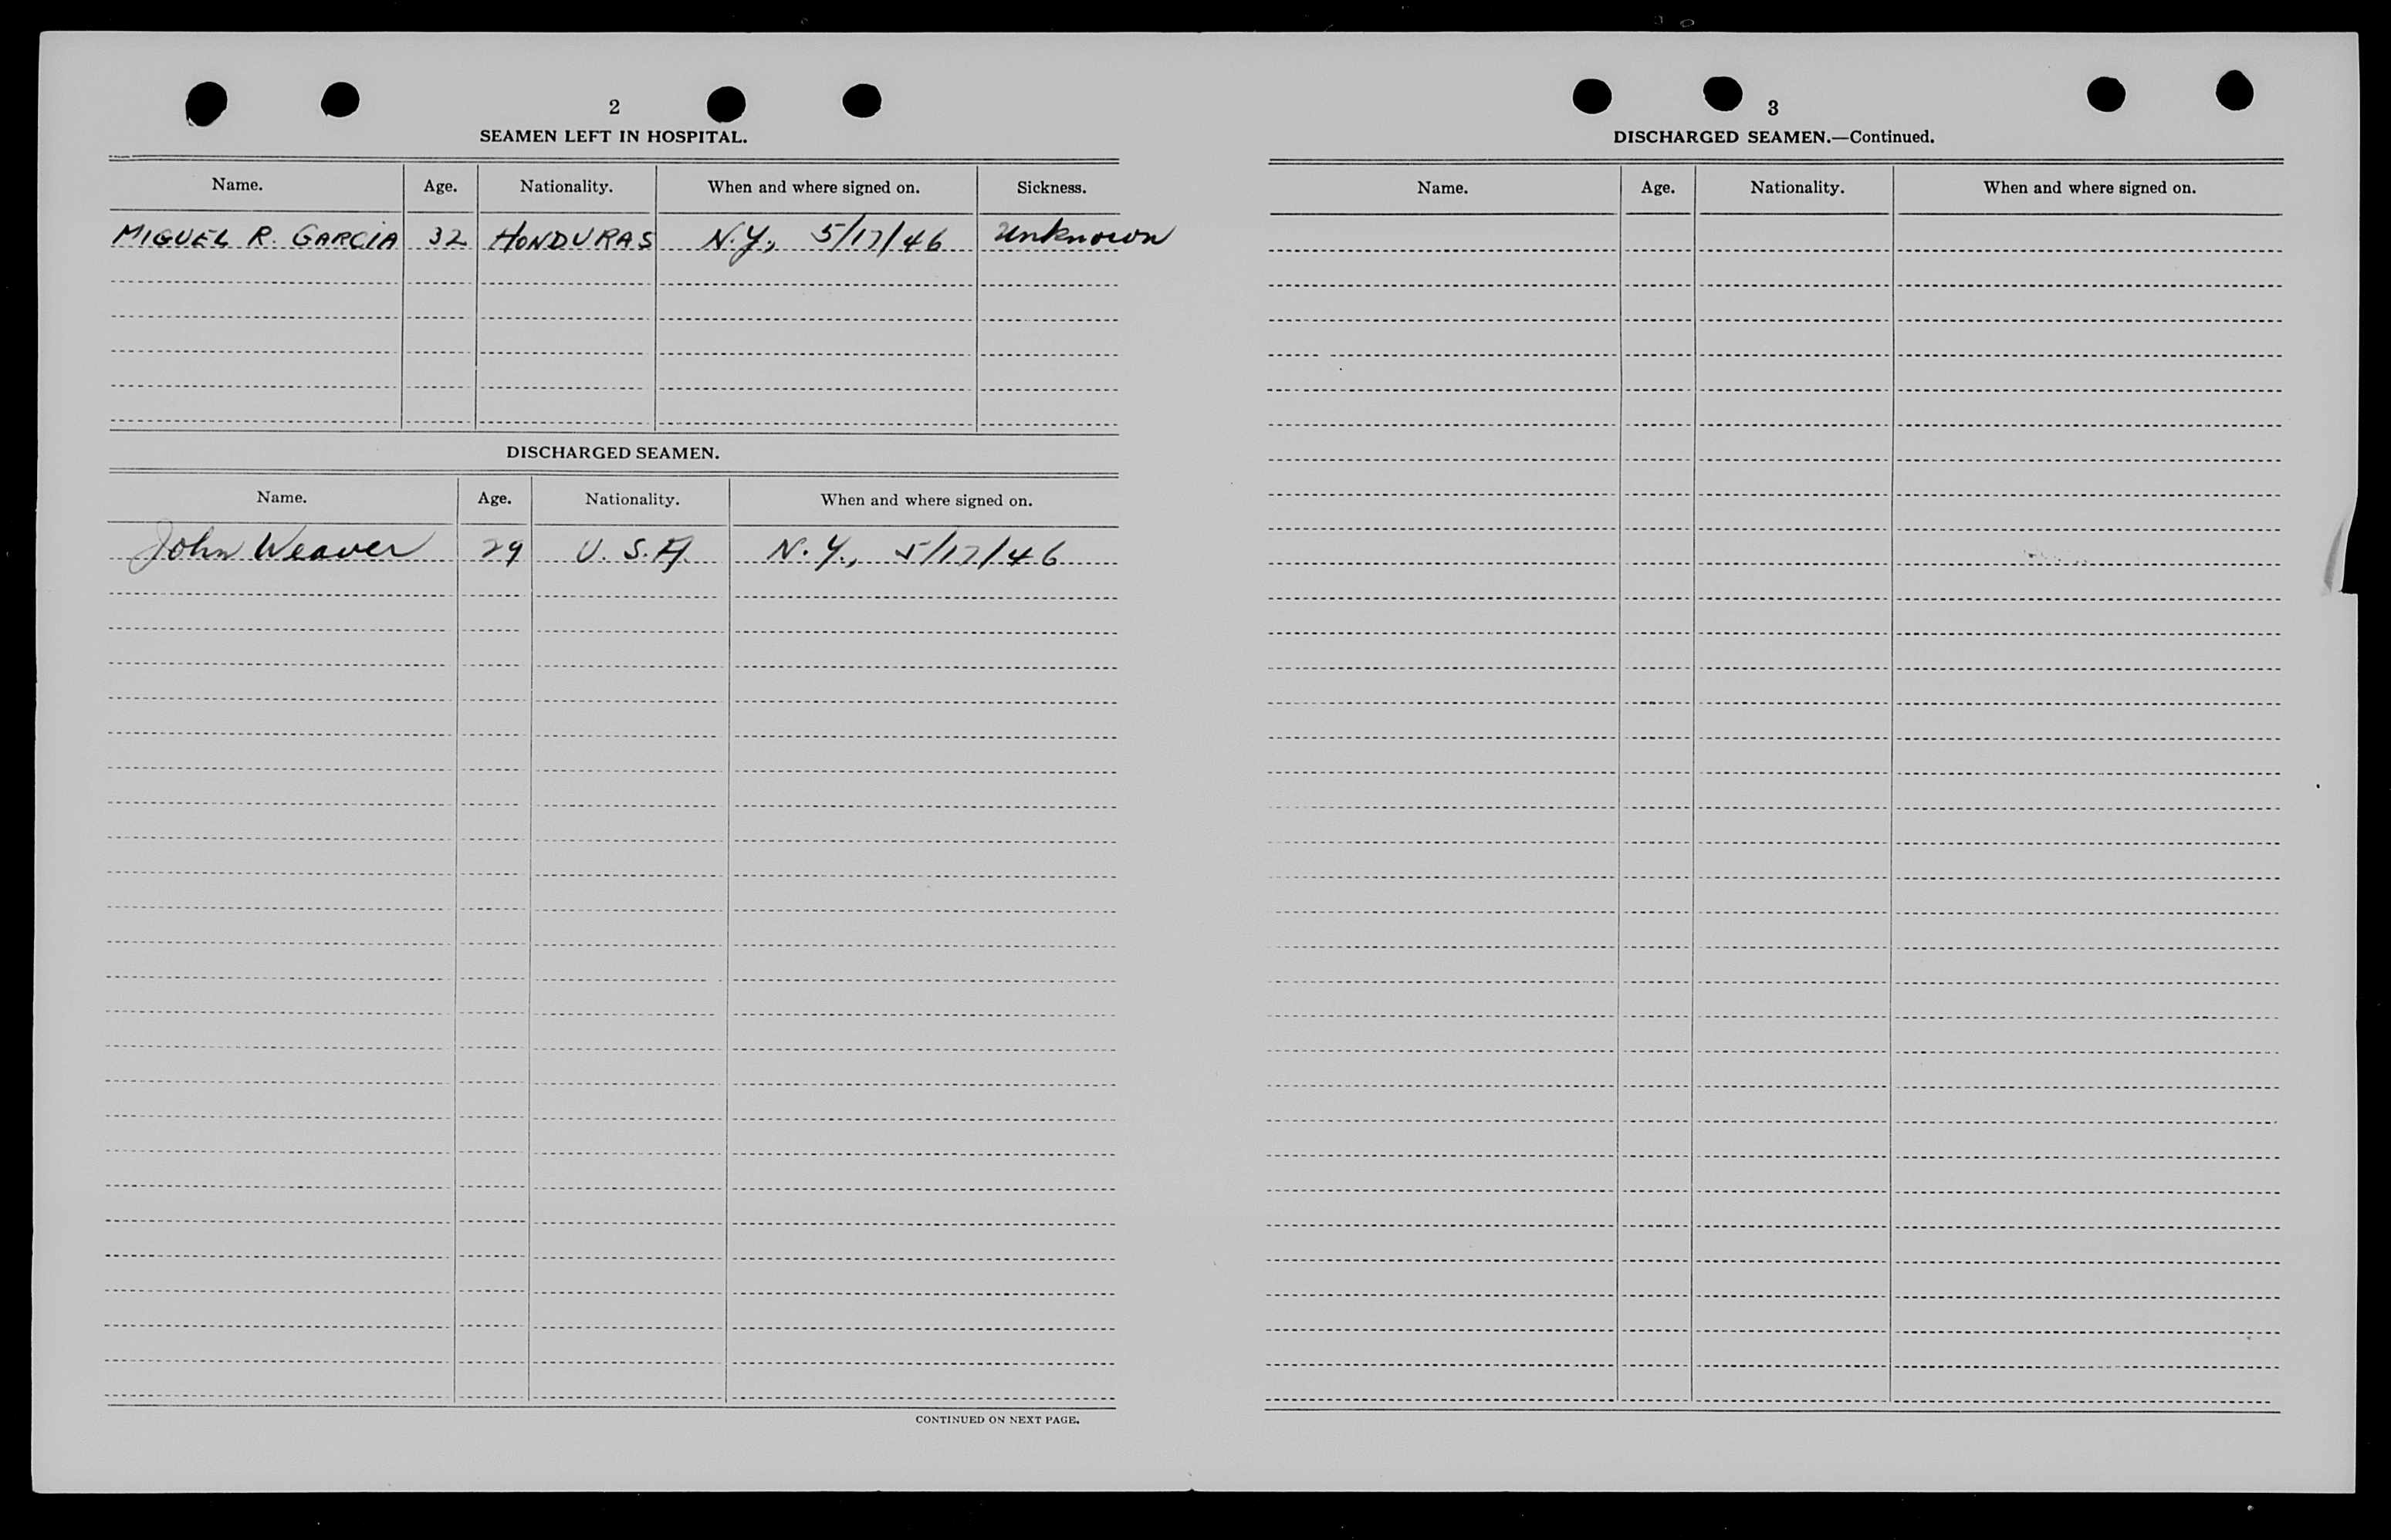 2
SEAMEN LEFT IN HOSPITAL.
Name. Age. Nationality. When and where signed on. Sickness.
MIGUEL R. GARCIA 32 HONDURAS N.Y., 5/17/46 Unknown
DISCHARGED SEAMEN.
Name. Age. Nationality. When and where signed on.
John Weaver 29 U.S.A. N.Y., 5/17/46
CONTINUED ON NEXT PAGE.
3
DISCHARGED SEAMEN.—Continued.
Name. Age. Nationality. When and where signed on.